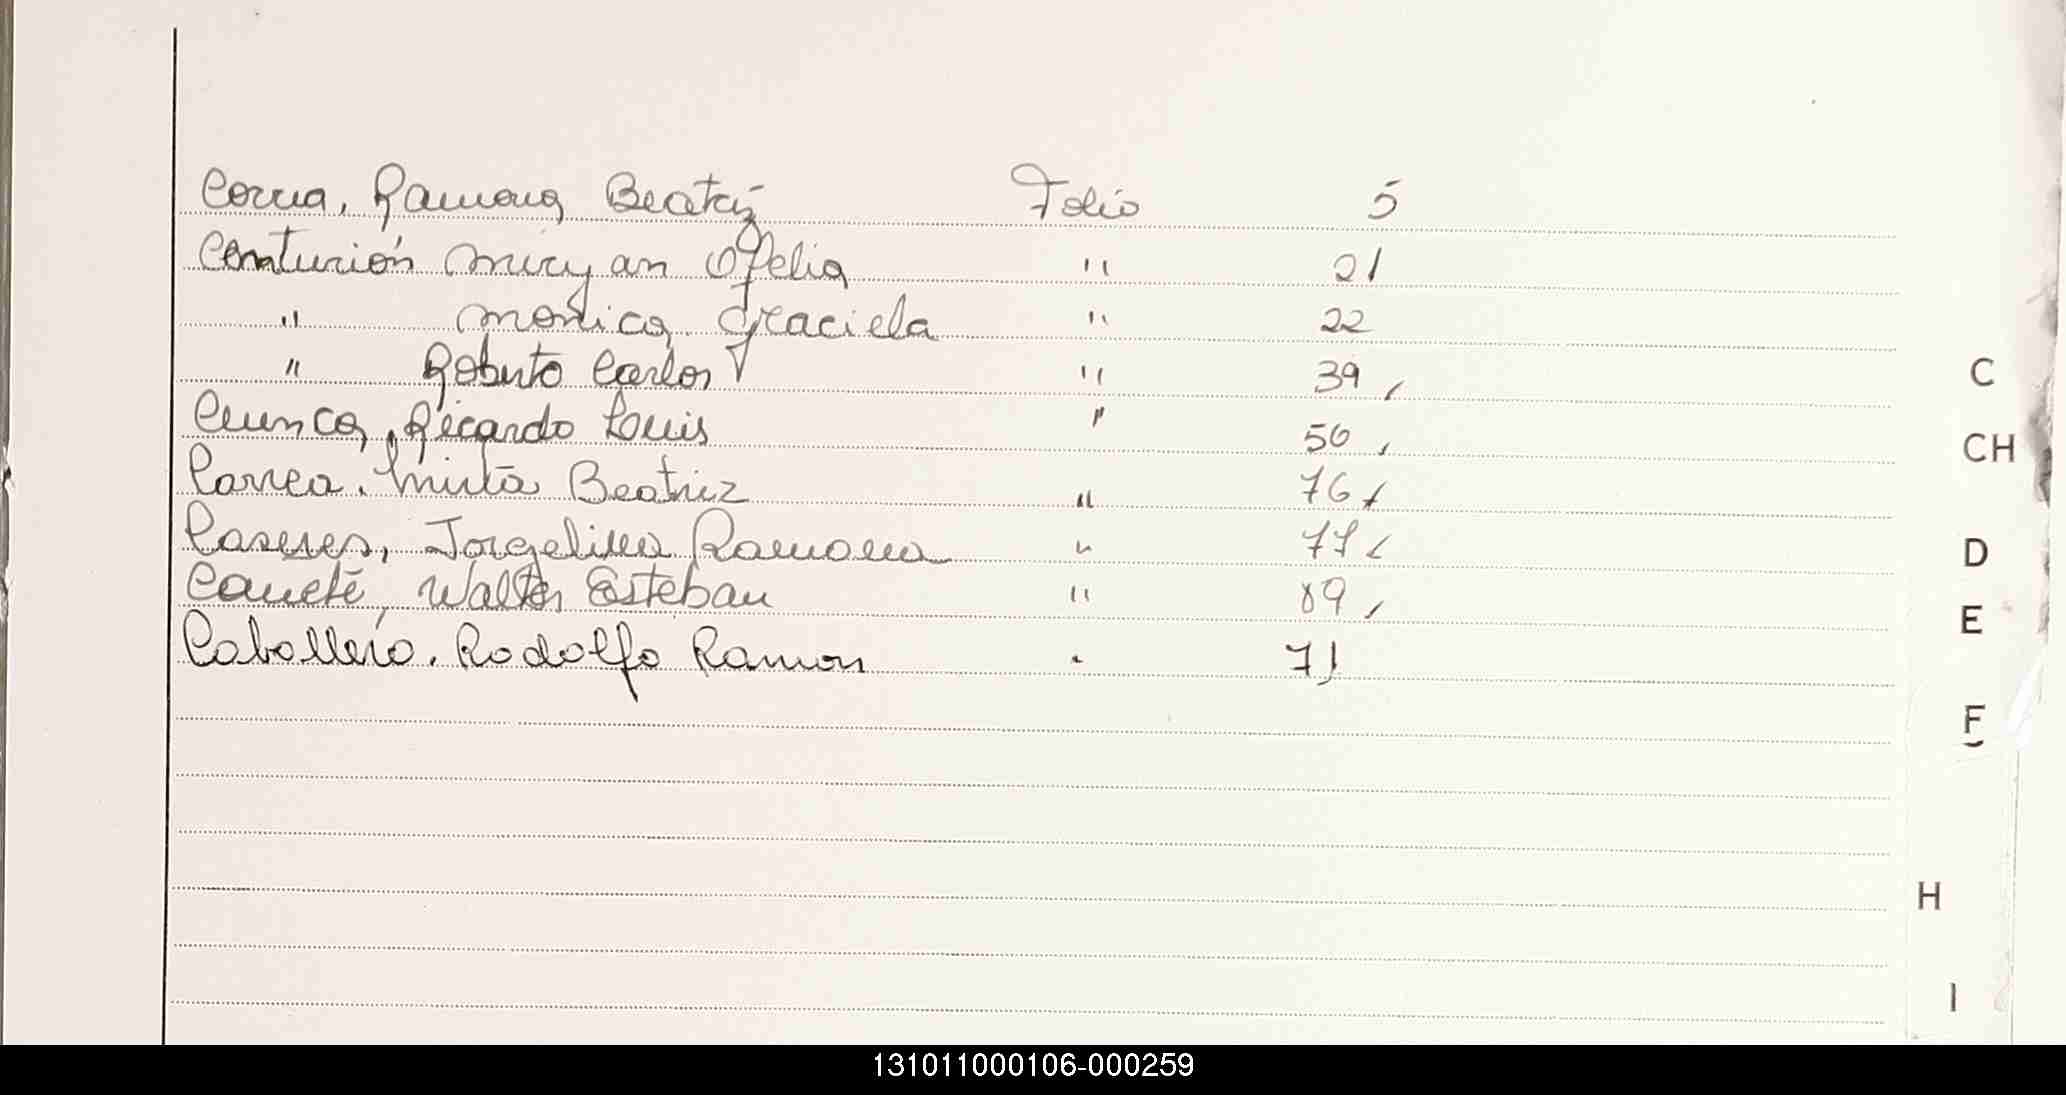 Correa, Ramona Beatriz Folio 5
Centurión Miryan Ofelia " 21
" Monica Graciela " 22
" Roberto Carlos " 39,
C
Cuenca, Ricardo Luis " 50,
CH
Correa. Mirta Beatriz " 76,
Caseres, Jorgelina Ramona " 77,
D
Cañete, Walter Esteban " 89,
E
Caballero. Rodolfo Ramon " 71
F
H
I
131011000106-000259